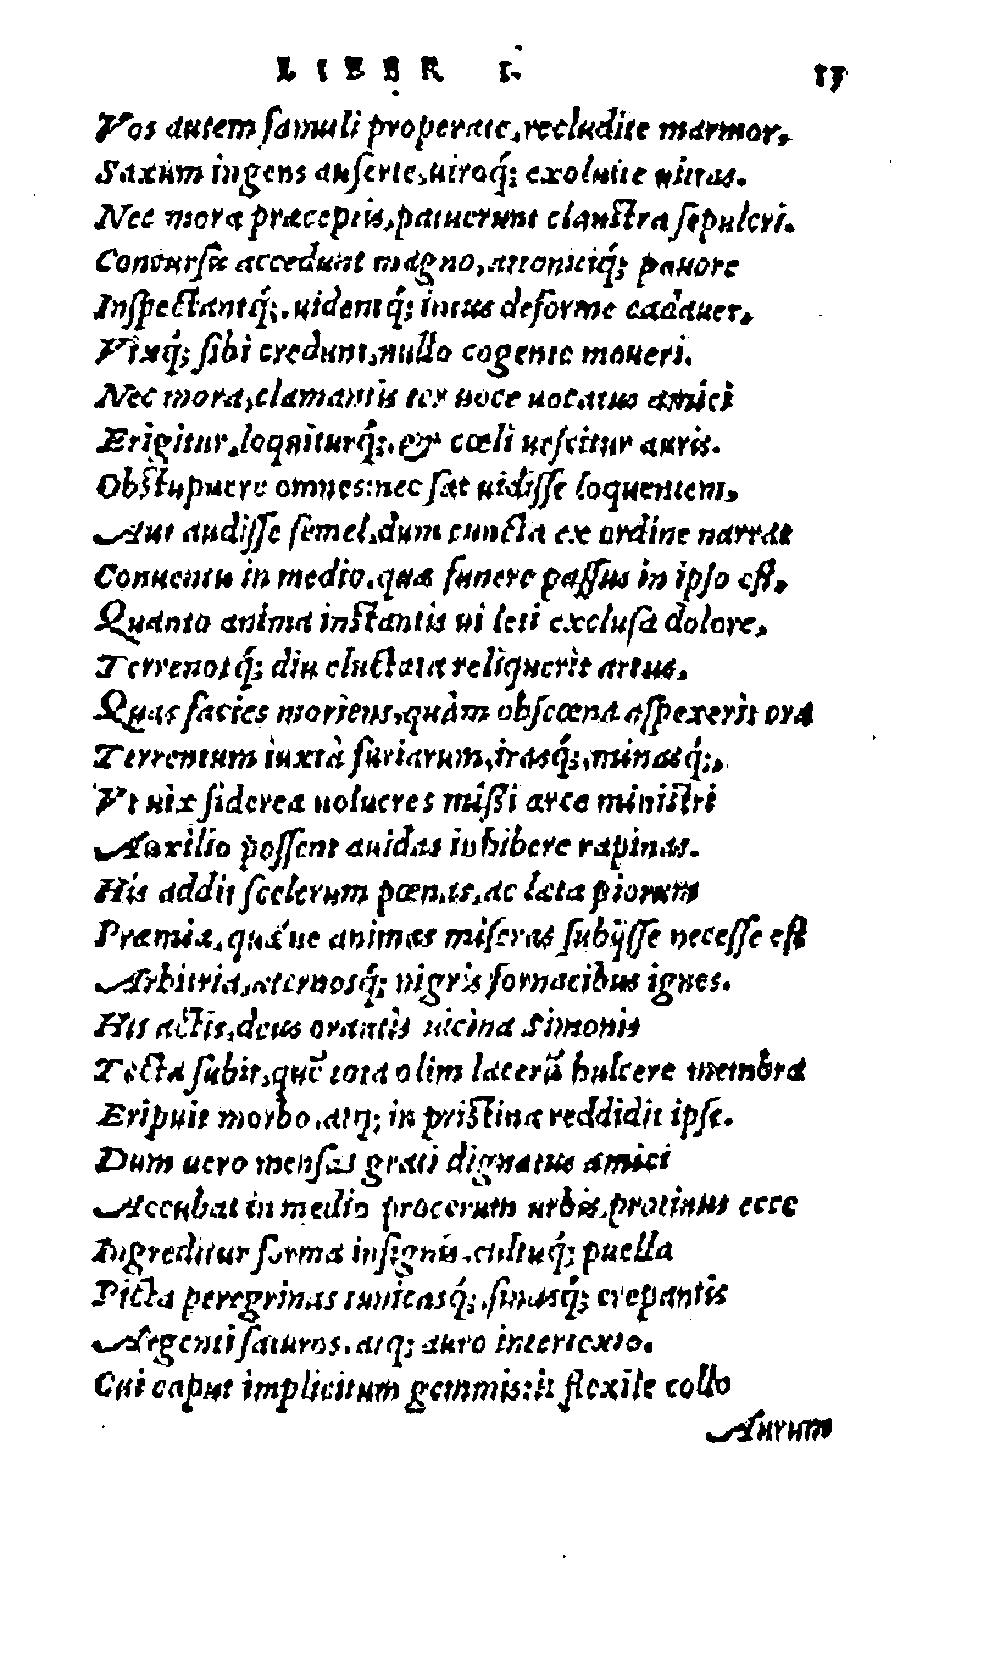 LIBER I. 15
Vos autem famuli properate, recludite marmor,
Saxum ingens auferte, uiroq́; exoluite uittas.
Nec mora præceptis, patuerunt claustra sepulcri.
Concursu accedunt magno, attonitiq́; pauore
Inspectantq́;, uidentq́; intus deforme cadauer,
Vixq́; sibi credunt, nullo cogente moueri.
Nec mora, clamantis ter uoce uocatus amici
Erigitur, loquiturq́;, & cœli uescitur auris.
Obstupuere omnes: nec sat uidisse loquentem,
Aut audisse semel, dum cuncta ex ordine narrat
Conuentu in medio, quæ funere passus in ipso est,
Quanto anima instantis ui leti exclusa dolore,
Terrenosq́; diu eluctata reliquerit artus.
Quas facies moriens, quàm obscœna aspexerit ora
Terrentum iuxtà furiarum, irasq́;, minasq́;,
Vt uix siderea uolucres missi arce ministri
Auxilio possent auidas inhibere rapinas.
His addit scelerum pœnas, ac læta piorum
Præmia, quǽue animas miseras subijsse necesse est
Arbitria, æternosq́; nigris fornacibus ignes.
His actis, deus orantis uicina Simonis
Tecta subit, quē tota olim lacerū hulcere membra
Eripuit morbo, atq; in pristina reddidit ipse.
Dum uero mensas grati dignatus amici
Accubat in medio procerum urbis, protinus ecce
Ingreditur forma insignis, cultuq́; puella
Picta peregrinas tunicasq́;, sinusq́; crepantis
Argenti saturos, atq; auro intertexto.
Cui caput implicitum gemmis: it flexile collo
Aurum